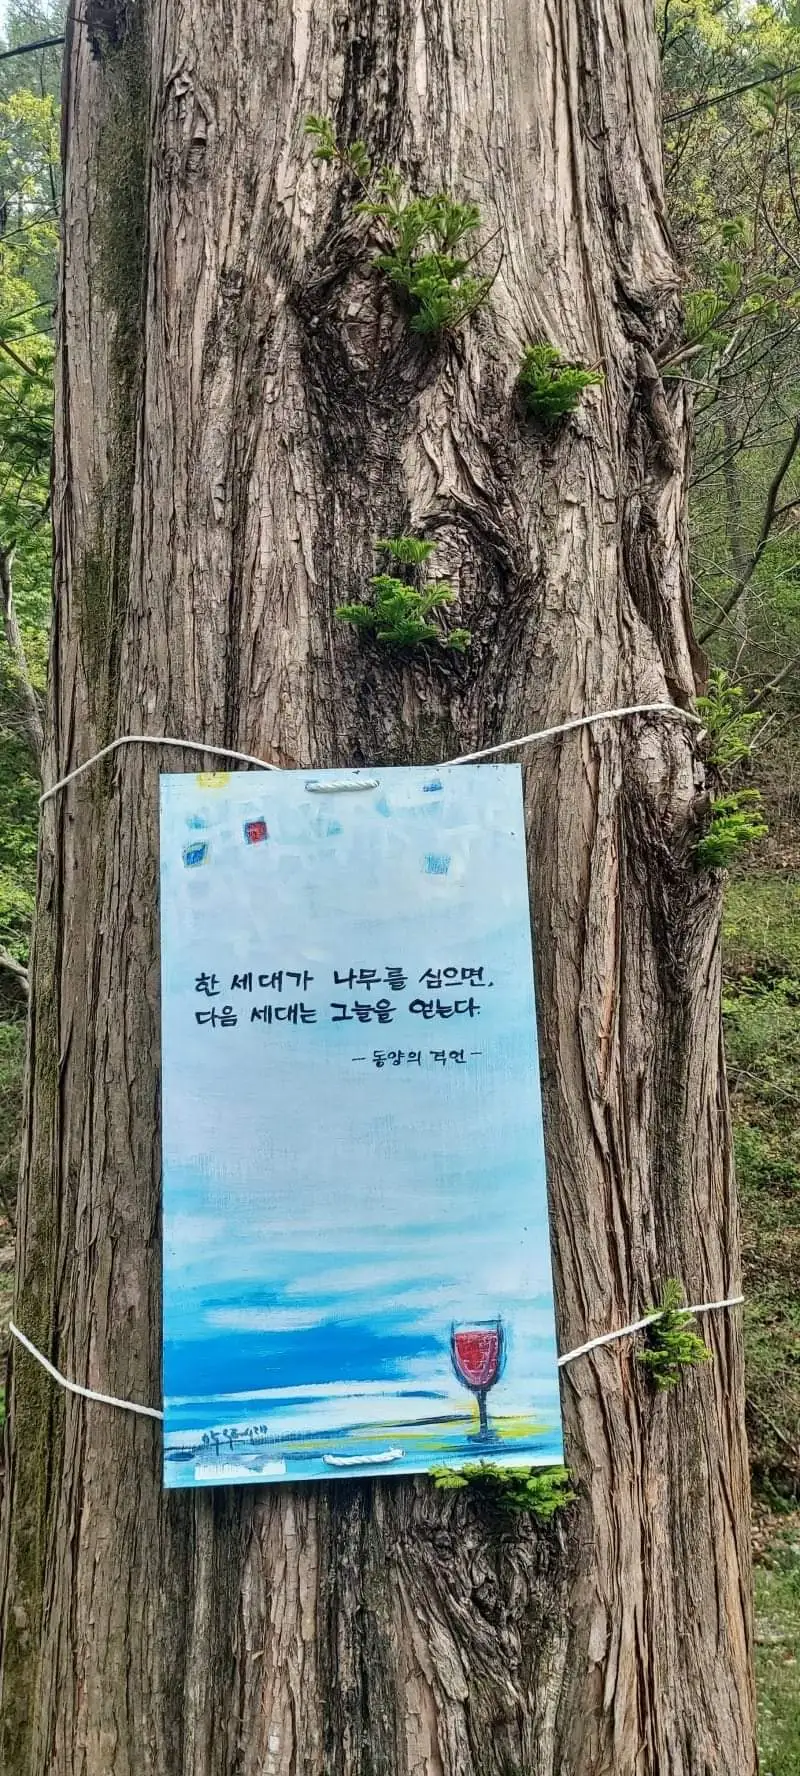 한 세대가 나무를 심으면,
다음 세대는 그늘을 얻는다.
- 동양의 격언 -